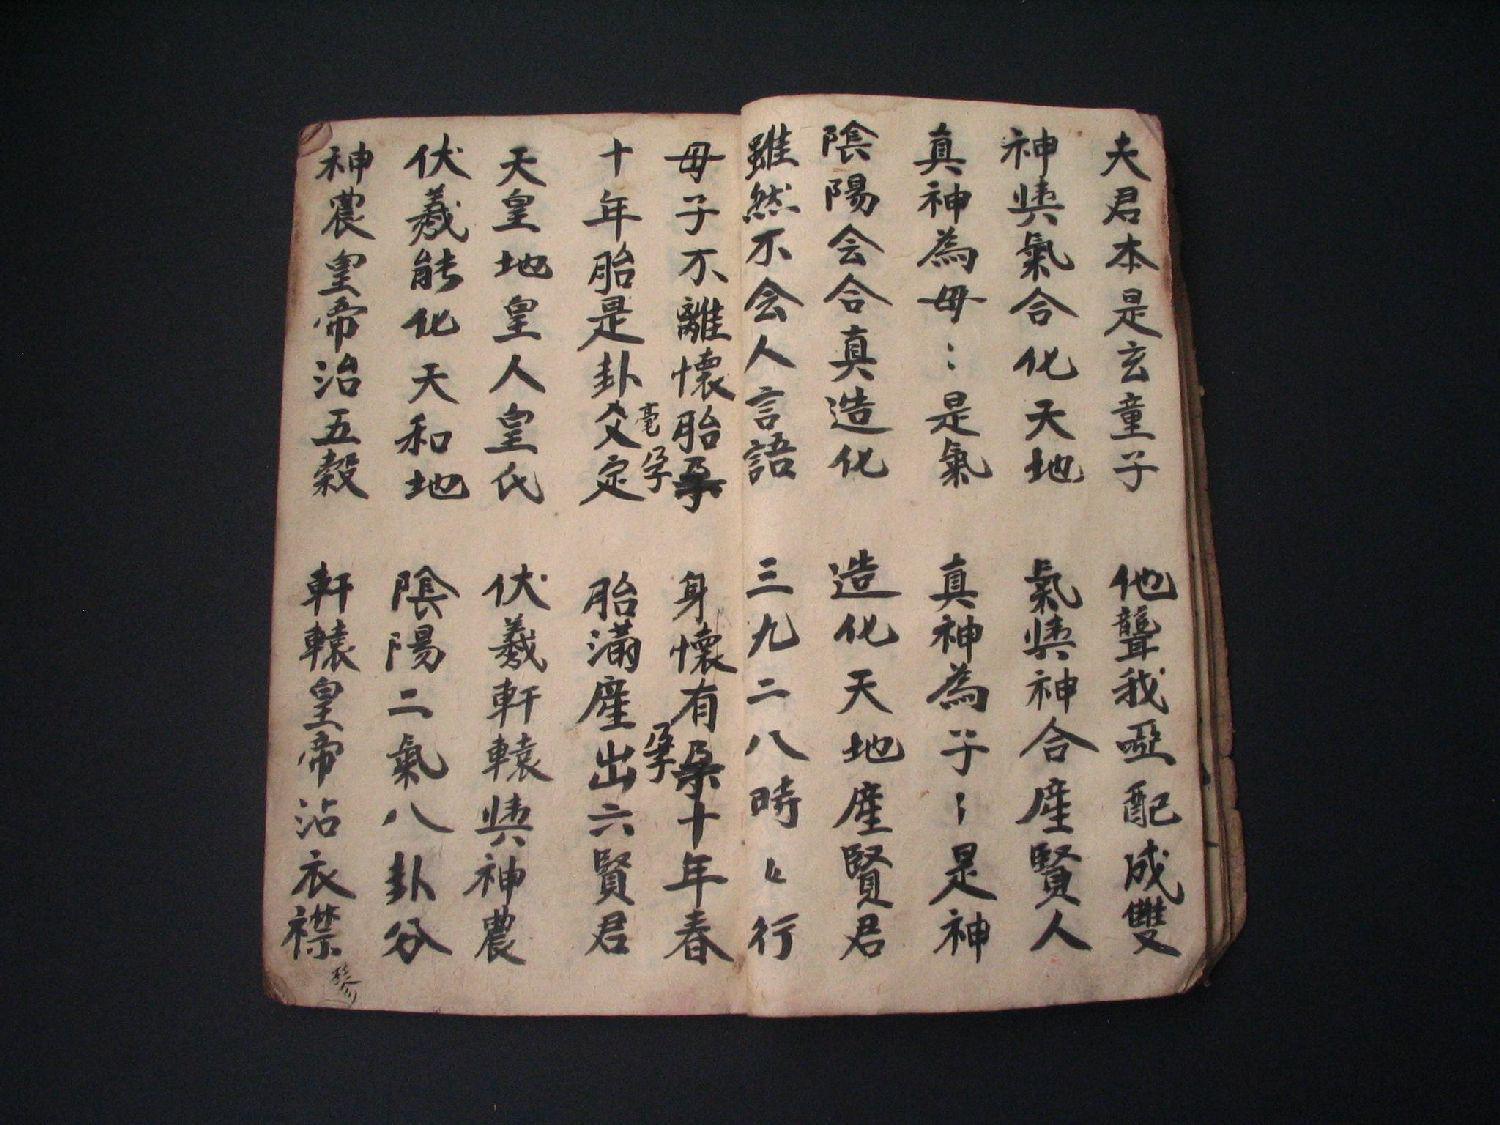 夫君本是玄童子　他聾我啞配成雙
神與氣合化天地　氣與神合產賢人
真神為母〻是氣　真神為子〻是神
陰陽会合真造化　造化天地產賢君
雖然不会人言語　三九二八時〻行
母子不離懷胎孕　身懷有孕十年春
孕
孕
十年胎是卦爻定　胎滿產出六賢君
毫
天皇地皇人皇氏　伏羲軒轅與神農
伏羲能化天和地　陰陽二氣八卦分
神農皇帝治五穀　軒轅皇帝沾衣襟